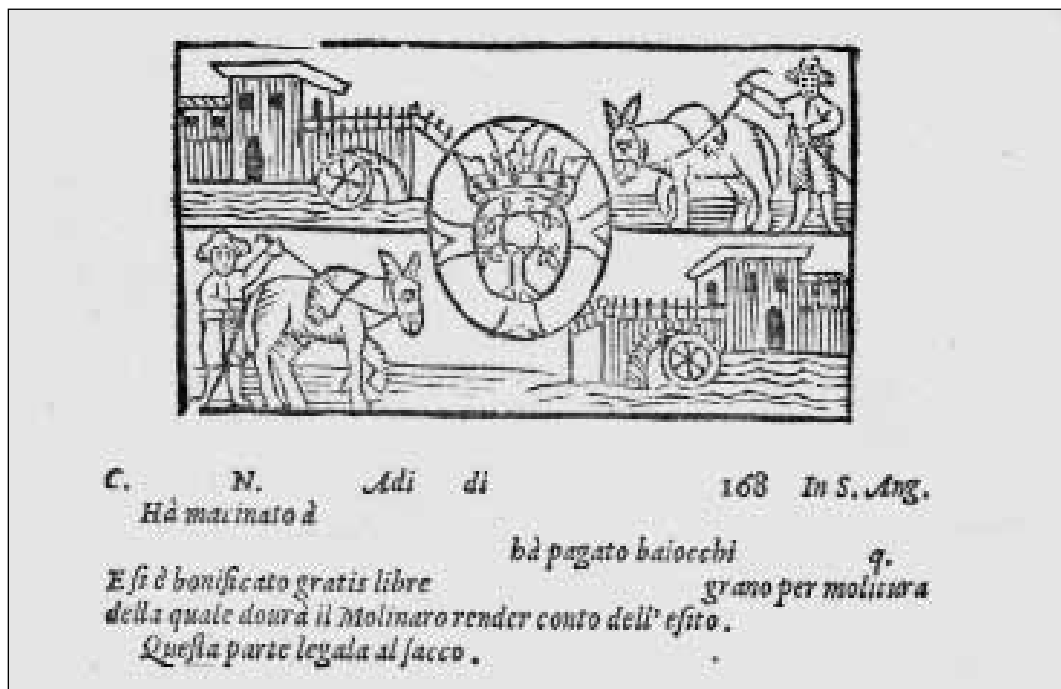 C. N. Adi di 168 In S. Ang.
Hà macinato à
hà pagato baiocchi q.
E ſi è bonificato gratis libre grano per molitura
della quale dourà il Molinaro render conto dell' eſito.
Queſta parte legala al ſacco.